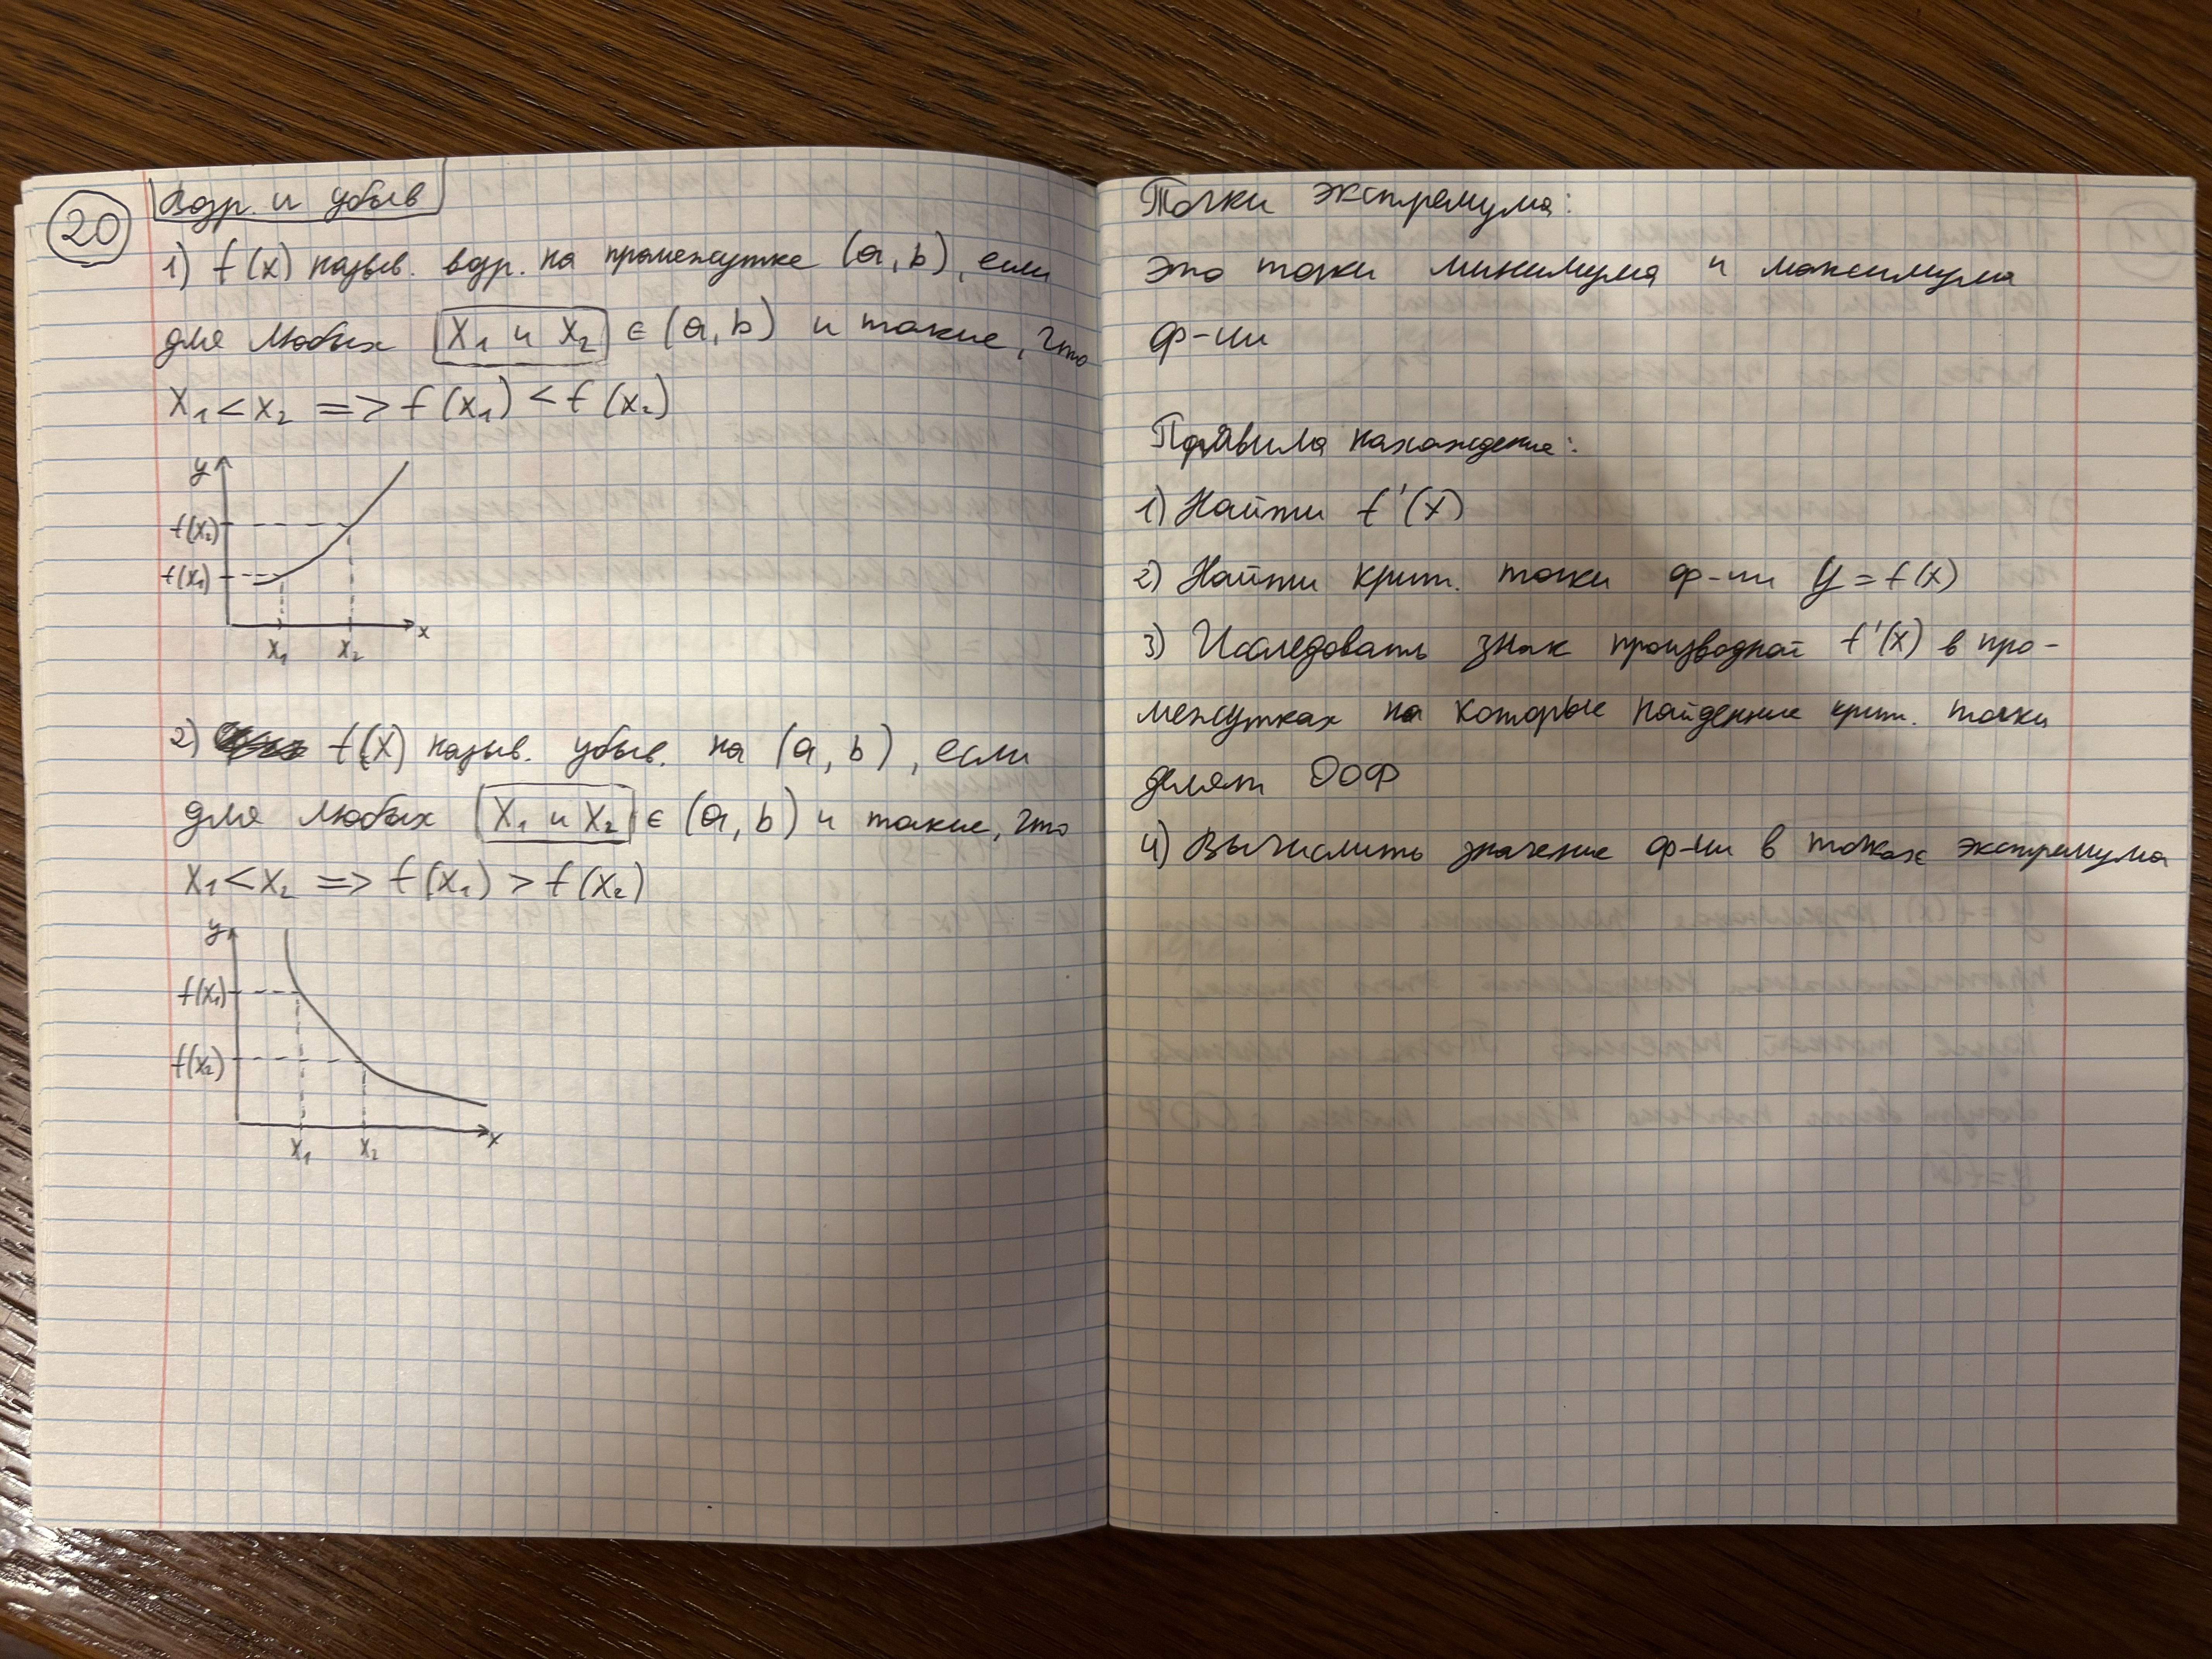 20
Возр. и убыв
1) f(x) назыв. возр. на промежутке (a, b), если
для любых x₁ и x₂ ∈ (a, b) и такие, что
x₁ < x₂ => f(x₁) < f(x₂)
y
f(x₂)
f(x₁)
x
x₁ x₂
2) f(x) назыв. убыв. на (a, b), если
для любых x₁ и x₂ ∈ (a, b) и такие, что
x₁ < x₂ => f(x₁) > f(x₂)
y
f(x₁)
f(x₂)
x
x₁ x₂
Точки экстремума:
это точки минимума и максимума
ф-ии
Правила нахождение:
1) Найти f'(x)
2) Найти крит. точки ф-ии y = f(x)
3) Исследовать знак производной f'(x) в про-
межутках на которые найденные крит. точки
делят ООФ
4) Вычислить значение ф-ии в точках экстремума